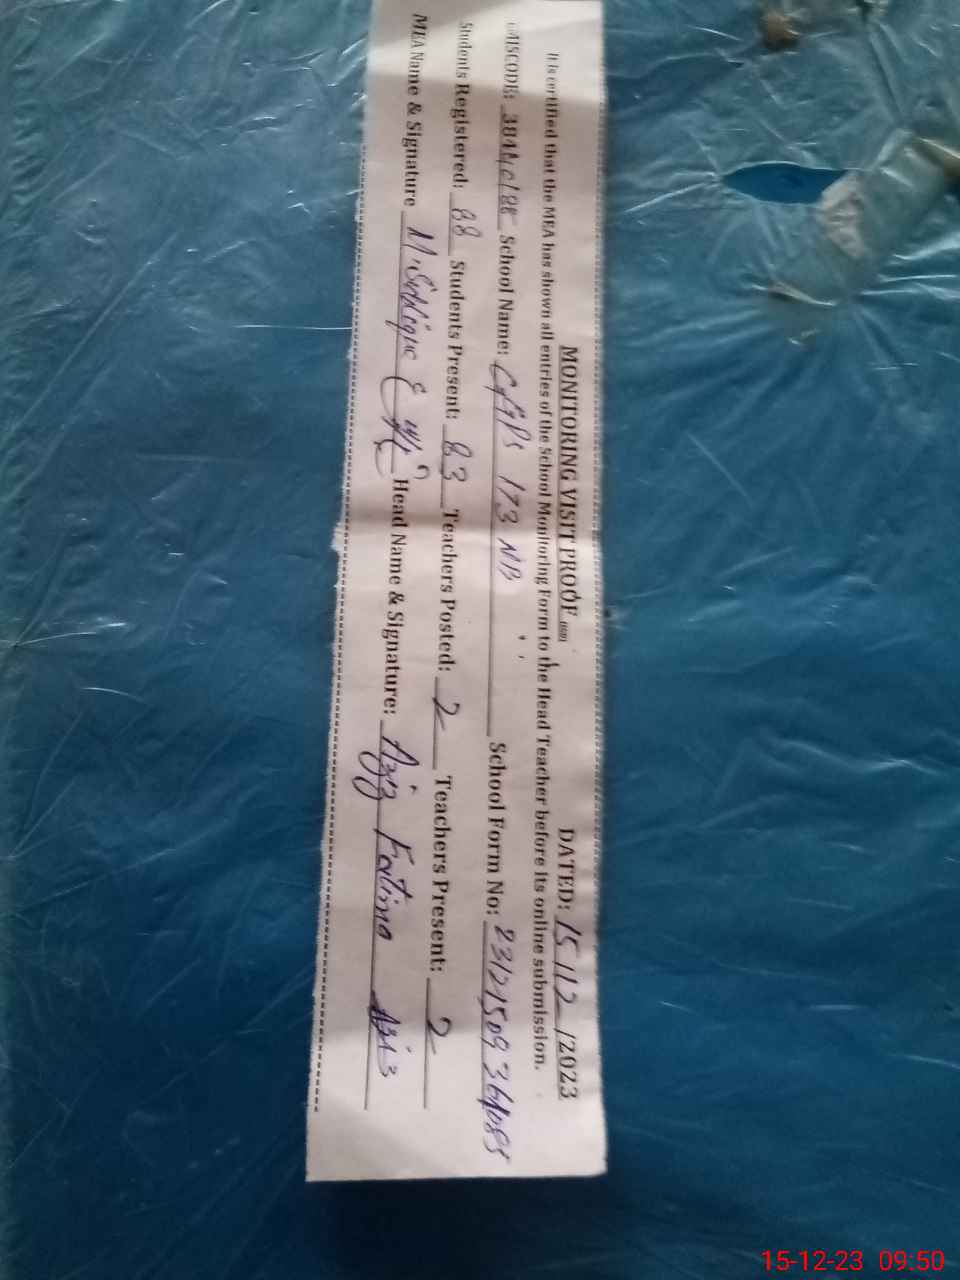 MONITORING VISIT PROOF DATED: 15/12/2023
It is certified that the MEA has shown all entries of the School Monitoring Form to the Head Teacher before its online submission.
EMISCODE: School Name: GGPS 173 NB School Form No:
Students Registered: 88 Students Present: 83 Teachers Posted: 2 Teachers Present: 2
MEA Name & Signature M. Siddique Head Name & Signature: Aziz Fatima
15-12-23 09:50